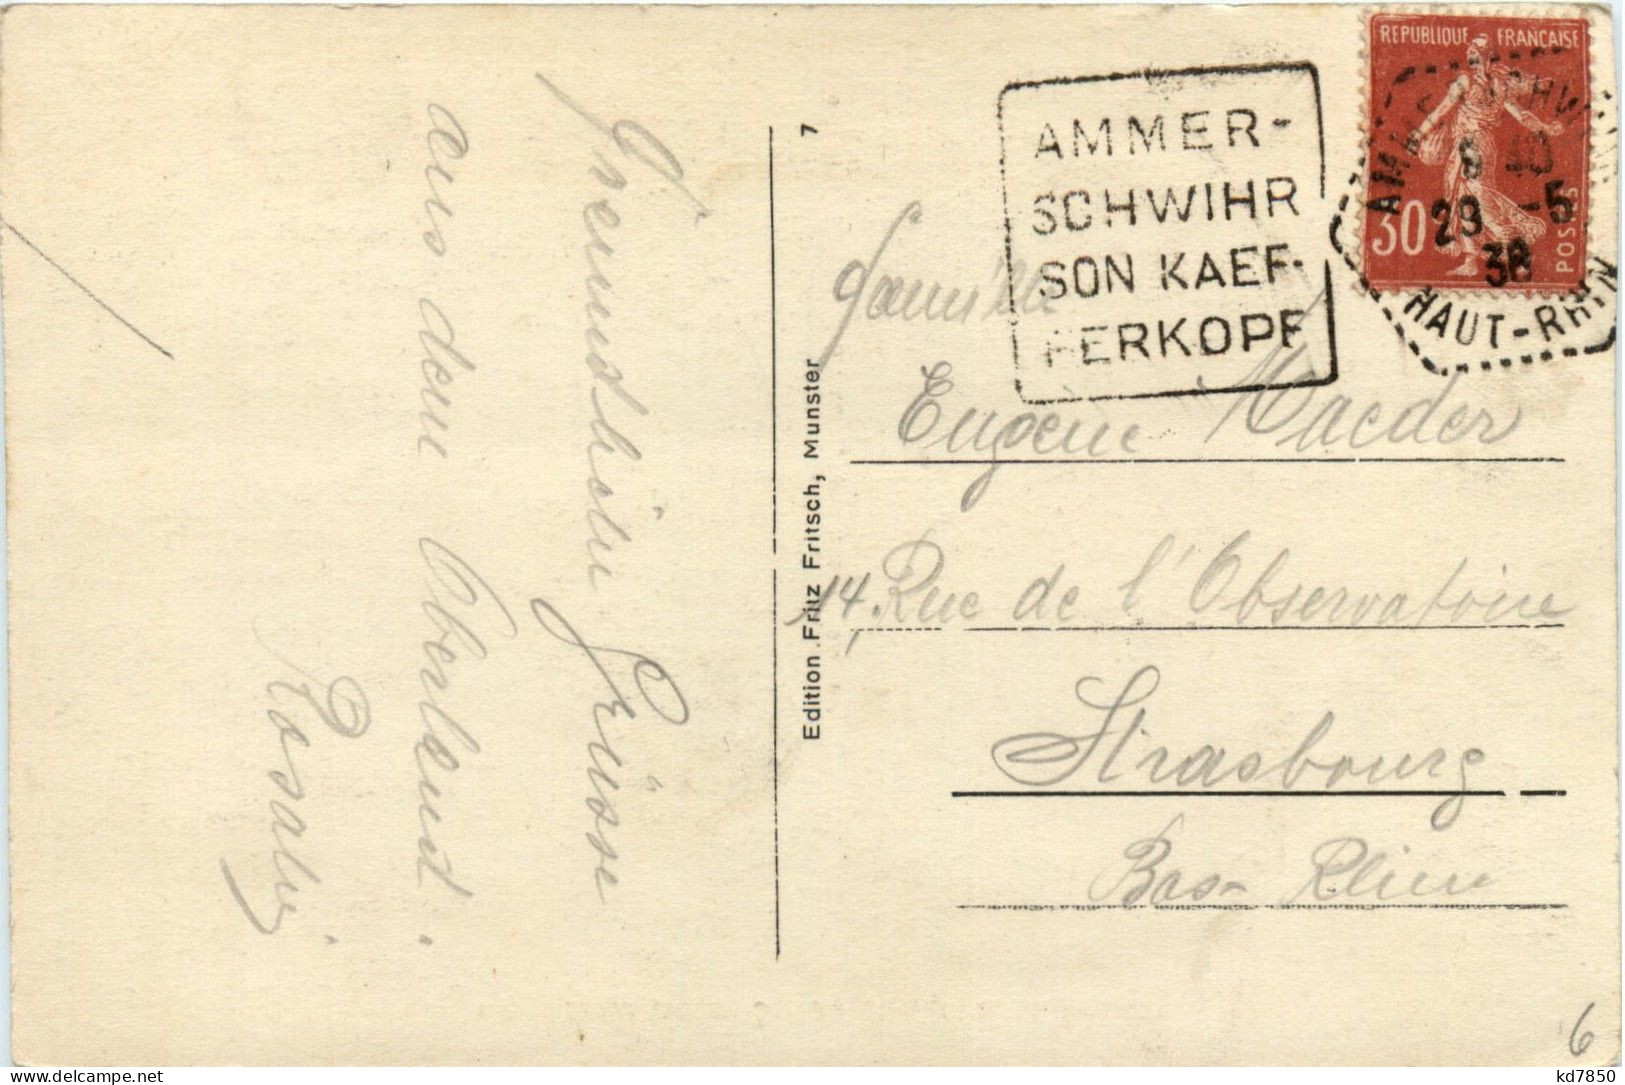 Freundliche Grüsse
aus dem Oberland.
Rosalie
7
Edition Fritz Fritsch, Munster
AMMER-
SCHWIHR
SON KAEF-
FERKOPF
REPUBLIQUE FRANÇAISE
30
POSTES
AMMERSCHWIHR
29 -5
38
HAUT-RHIN
Famille
Eugène Maeder
14, Rue de l'Observatoire
Strasbourg
Bas-Rhin
6
kd7850